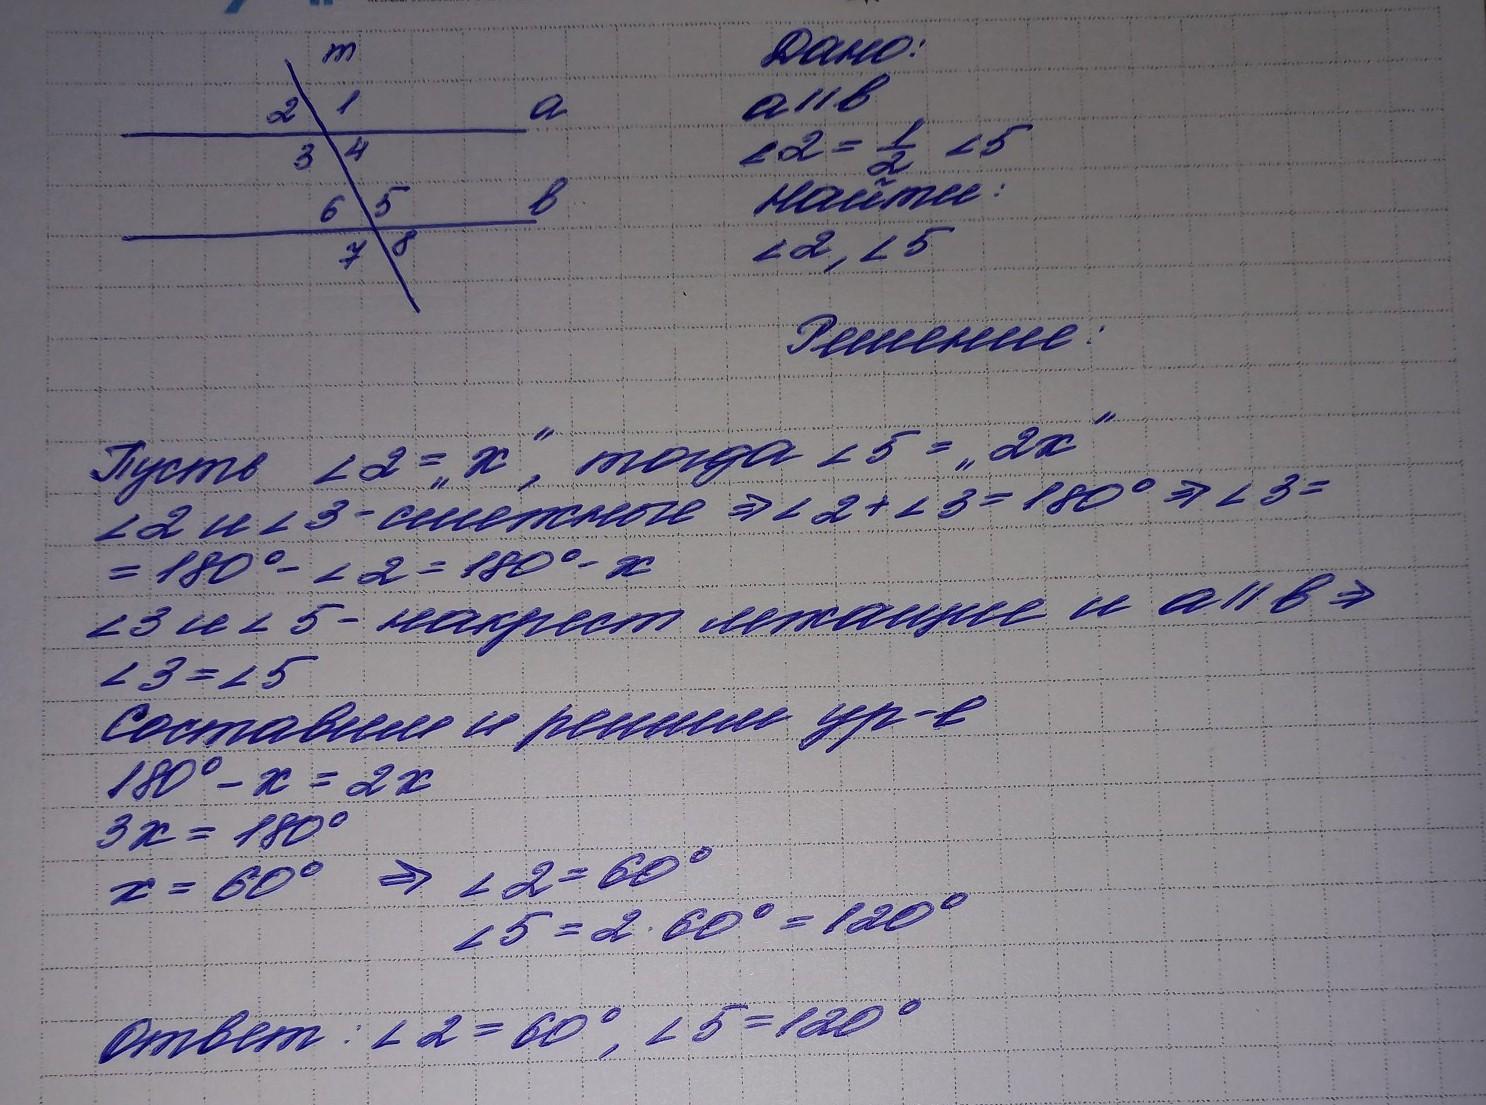 m
2 1 a
3 4
6 5 в
7 8
Дано:
a || в
∠2 = 1/2 ∠5
Найти:
∠2, ∠5
Решение:
Пусть ∠2 = „x“, тогда ∠5 = „2x“
∠2 и ∠3 - смежные ⇒ ∠2 + ∠3 = 180° ⇒ ∠3 =
= 180° - ∠2 = 180° - x
∠3 и ∠5 - накрест лежащие и a || в ⇒
∠3 = ∠5
Составим и решим ур-е
180° - x = 2x
3x = 180°
x = 60° ⇒ ∠2 = 60°
∠5 = 2 · 60° = 120°
Ответ: ∠2 = 60°, ∠5 = 120°